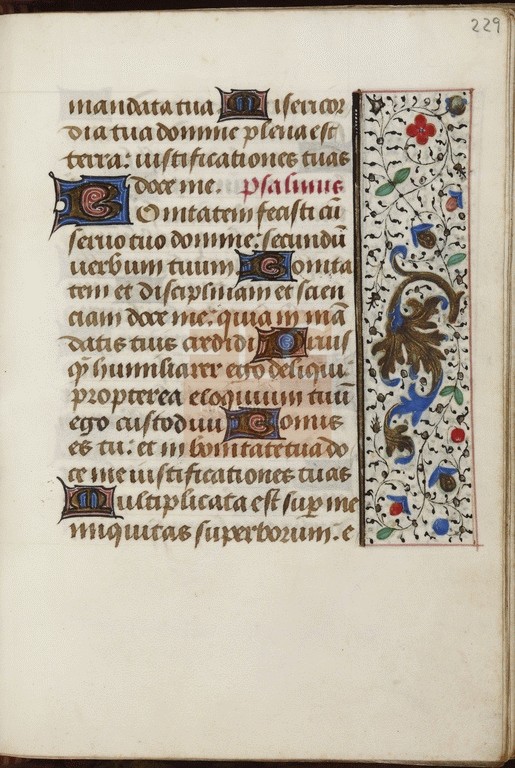 229
mandata tua Misericor
dia tua domine plena est
terra: iustificationes tuas
doce me. psalmus
Bonitatem fecisti cū
seruo tuo domine: secundū
uerbum tuum. Bonita
tem et disciplinam et scien
ciam doce me: quia in mā
datis tuis credidi Prius
q̄ humiliarer ego deliqui
propterea eloquium tuū
ego custodiui Bonus
es tu: et in bonitate tua do
ce me iustificationes tuas
Multiplicata est sup̄ me
iniquitas superborum. e